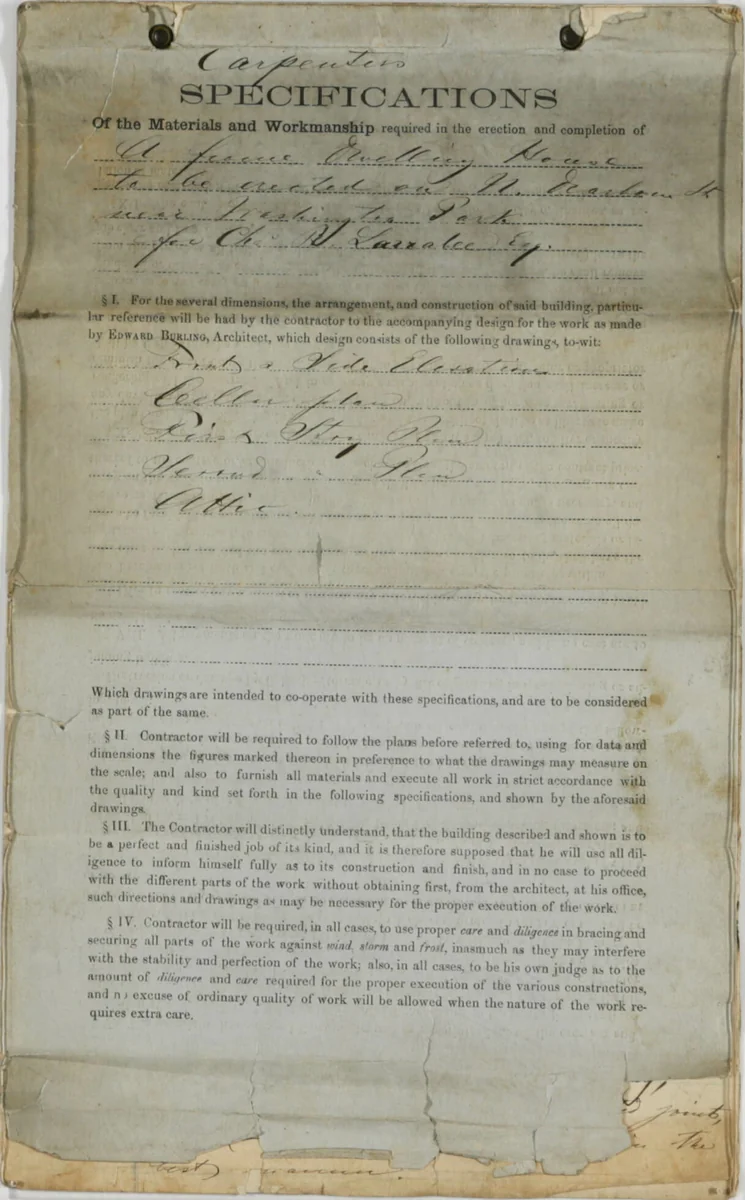 Carpenters
SPECIFICATIONS
Of the Materials and Workmanship required in the erection and completion of
A frame Dwelling House
to be erected on N. Dearborn St
near Washington Park
for Chs R Larrabee Esq.
§ I. For the several dimensions, the arrangement, and construction of said building, particu-
lar reference will be had by the contractor to the accompanying design for the work as made
by EDWARD BURLING, Architect, which design consists of the following drawings, to-wit:
Front & Side Elevations
Cellar plan
First Story Plan
Second " Plan
Attic.
Which drawings are intended to co-operate with these specifications, and are to be considered
as part of the same.
§ II. Contractor will be required to follow the plans before referred to, using for data and
dimensions the figures marked thereon in preference to what the drawings may measure on
the scale; and also to furnish all materials and execute all work in strict accordance with
the quality and kind set forth in the following specifications, and shown by the aforesaid
drawings.
§ III. The Contractor will distinctly understand, that the building described and shown is to
be a perfect and finished job of its kind, and it is therefore supposed that he will use all dil-
igence to inform himself fully as to its construction and finish, and in no case to proceed
with the different parts of the work without obtaining first, from the architect, at his office,
such directions and drawings as may be necessary for the proper execution of the work.
§ IV. Contractor will be required, in all cases, to use proper care and diligence in bracing and
securing all parts of the work against wind, storm and frost, inasmuch as they may interfere
with the stability and perfection of the work; also, in all cases, to be his own judge as to the
amount of diligence and care required for the proper execution of the various constructions,
and no excuse of ordinary quality of work will be allowed when the nature of the work re-
quires extra care.
joints,
in the
best manner.